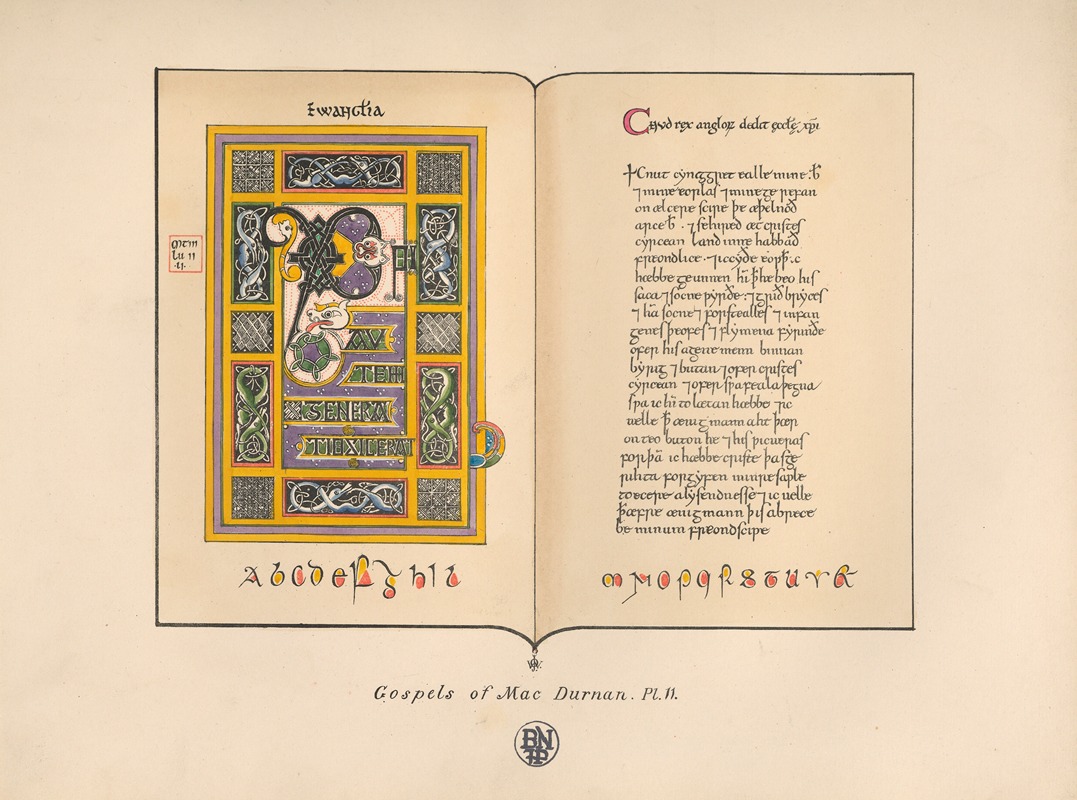 AU
TEM
GENERA
TIO XP̄I ERAT
A b c d e f ʒ h i l
Cnud rex angloꝝ dedit eccłę xp̄i
⁊ mine eorlas ⁊ mine gerefan
on ælcere scire þe æþelnoð
arceb̄ · ⁊ se hired æt cristes
cyrcean land inne habbað
freondlice · ⁊ ic cyðe eoƿ þ̄ ic
hæbbe geunnen him þ̄ he beo his
saca ⁊ socne ƿyrðe · ⁊ griðbryces
⁊ hamsocne ⁊ forstealles ⁊ infan
genes þeofes ⁊ flymena fyrmðe
ofer his agene menn binnan
byrig ⁊ butan ⁊ ofer cristes
cyrcean ⁊ ofer sƿa feala þegna
sƿa ic him to lætan hæbbe ⁊ ic
nelle þ̄ ænig mann aht þær
on teo buton he ⁊ his ƿicneras
forþam ic hæbbe criste þas ge
rihta forgyfen minre saƿle
to ecere alysendnesse ⁊ ic nelle
þ̄ æfre ænig mann þis abrece
be minum freondscipe
m n o p q r s t u
Gospels of Mac Durnan. Pl. 11.